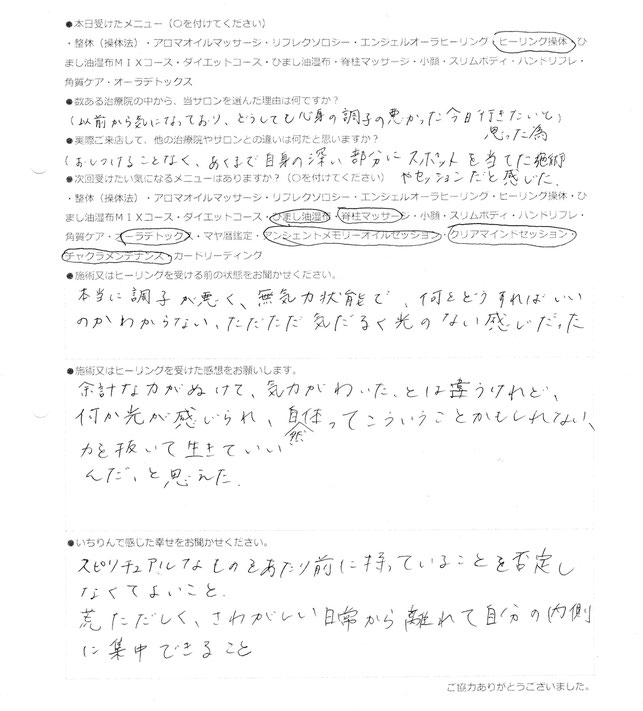 ●本日受けたメニュー（〇を付けてください）
・整体（操体法）・アロマオイルマッサージ・リフレクソロジー・エンジェルオーラヒーリング・ヒーリング操体・ひ
まし油湿布ＭＩＸコース・ダイエットコース・ひまし油湿布・脊柱マッサージ・小顔・スリムボディ・ハンドリフレ・
角質ケア・オーラデトックス
●数ある治療院の中から、当サロンを選んだ理由は何ですか？
(以前から気になっており、どうしても心身の調子の悪かった今日行きたいと
思った為
●実際ご来店して、他の治療院やサロンとの違いは何だと思いますか？
(おしつけることなく、あくまで自身の深い部分にスポットを当てた施術
やセッションだと感じた.
●次回受けたい気になるメニューはありますか？（〇を付けてください）
・整体（操体法）・アロマオイルマッサージ・リフレクソロジー・エンジェルオーラヒーリング・ヒーリング操体・ひ
まし油湿布ＭＩＸコース・ダイエットコース・ひまし油湿布・脊柱マッサージ・小顔・スリムボディ・ハンドリフレ・
角質ケア・オーラデトックス・マヤ暦鑑定・アンシェントメモリーオイルセッション・クリアマインドセッション・
チャクラメンテナンス・カードリーディング
●施術又はヒーリングを受ける前の状態をお聞かせください。
本当に調子が悪く、無気力状態で、何をどうすればいい
のかわからない、ただただ気だるく光のない感じだった
●施術又はヒーリングを受けた感想をお願いします。
余計な力がぬけて、気力がわいた、とは違うけれど、
何か光が感じられ、自然体ってこういうことかもしれない、
力を抜いて生きていい
んだ、と思えた.
●いちりんで感じた幸せをお聞かせください。
スピリチュアルなものをあたり前に持っていることを否定し
なくてよいこと.
荒ただしく、さわがしい日常から離れて自分の内側
に集中できること
ご協力ありがとうございました。